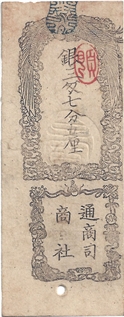 銀二匁七分五厘
通商司
商社